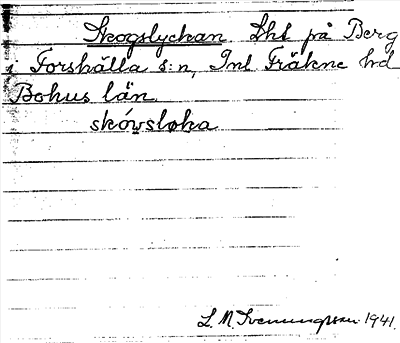 Skogslyckan Lht på Berg
i Forshälla s:n, Inl Fräkne hd
Bohus län
skówsløka
L. M. Svenungsson 1941.